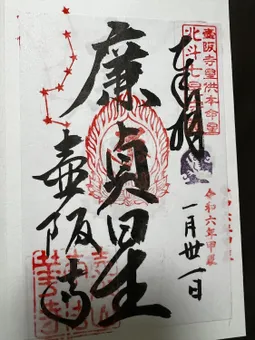 奉拝
壺阪寺星供本命星
北斗七星
令和六年甲辰
一月卅一日
廉貞星
壺阪寺